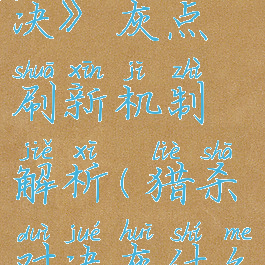 决》灰点
shuā xīn jī zhì
刷新机制
jiě xī liè shā
解析(猎杀
duì jué huī shí me
对决灰什么